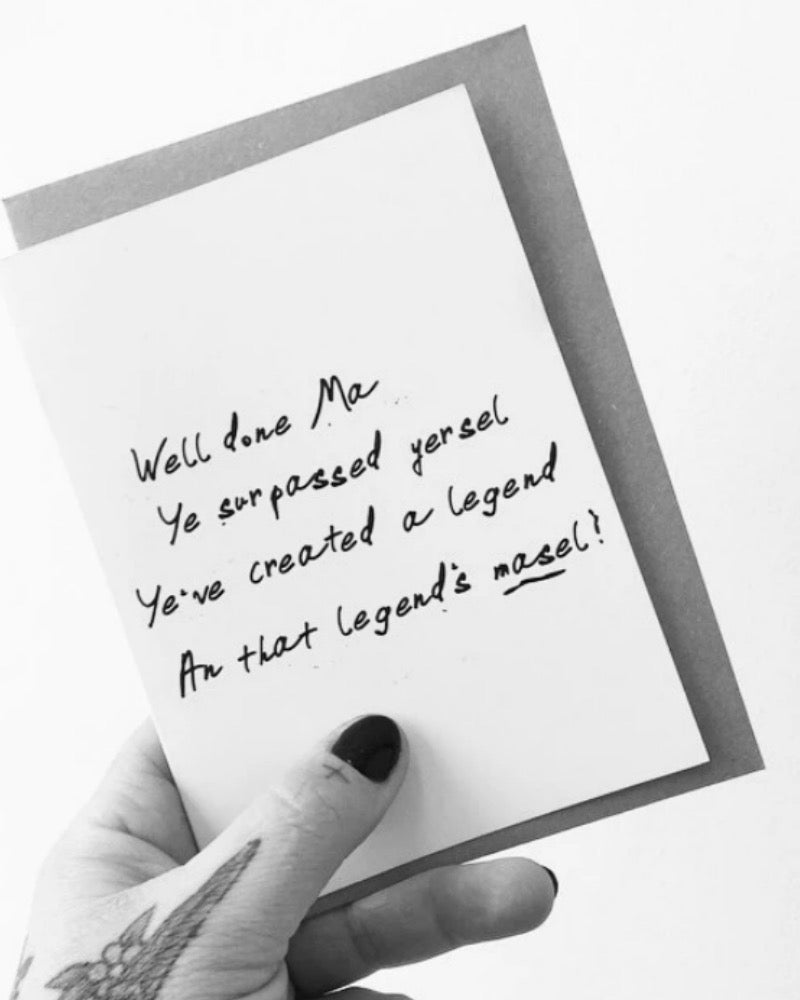 Well done Ma
Ye surpassed yersel
Ye've created a legend
An that legend's masel!